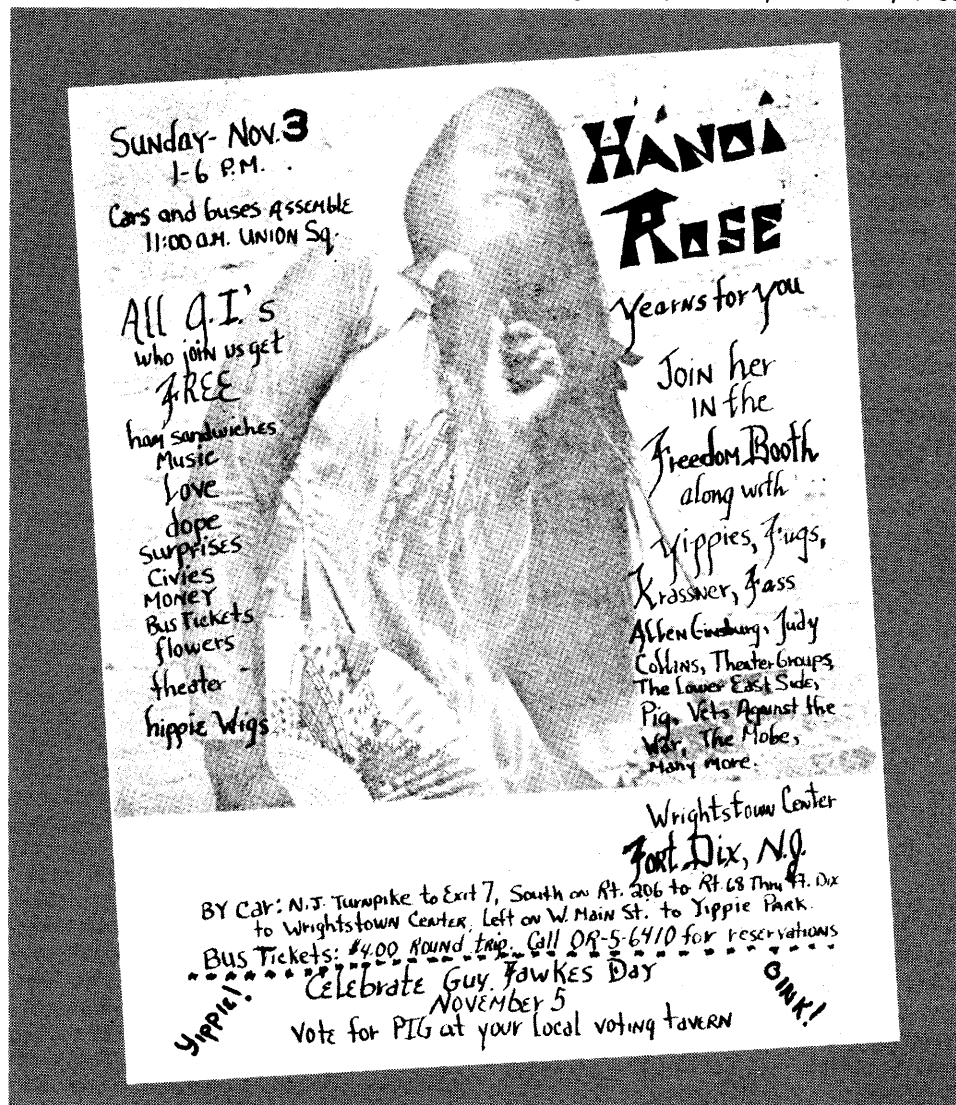 Sunday- Nov. 3
1-6 P.M.
Cars and buses Assemble
11:00 a.m. Union Sq.
All G.I.'s
who join us get
FREE
ham sandwiches
Music
Love
dope
Surprises
Civies
Money
Bus Tickets
flowers
theater
hippie Wigs
HANOI
ROSE
Yearns for you
Join her
in the
Freedom Booth
along with
Yippies, Fugs,
Krassner, Fass
Allen Ginsburg, Judy
Collins, Theater Groups,
The Lower East Side,
Pig, Vets Against the
War, The Mobe,
Many More.
Wrightstown Center
Fort Dix, N.J.
BY Car: N.J. Turnpike to Exit 7, South on Rt. 206 to Rt. 68 Thru Ft. Dix
to Wrightstown Center, Left on W. Main St. to Yippie Park.
Bus Tickets: $4.00 Round trip. Call OR-5-6410 for reservations
Yippie!
Celebrate Guy Fawkes Day
November 5
Vote for PIG at your local voting tavern
OINK!